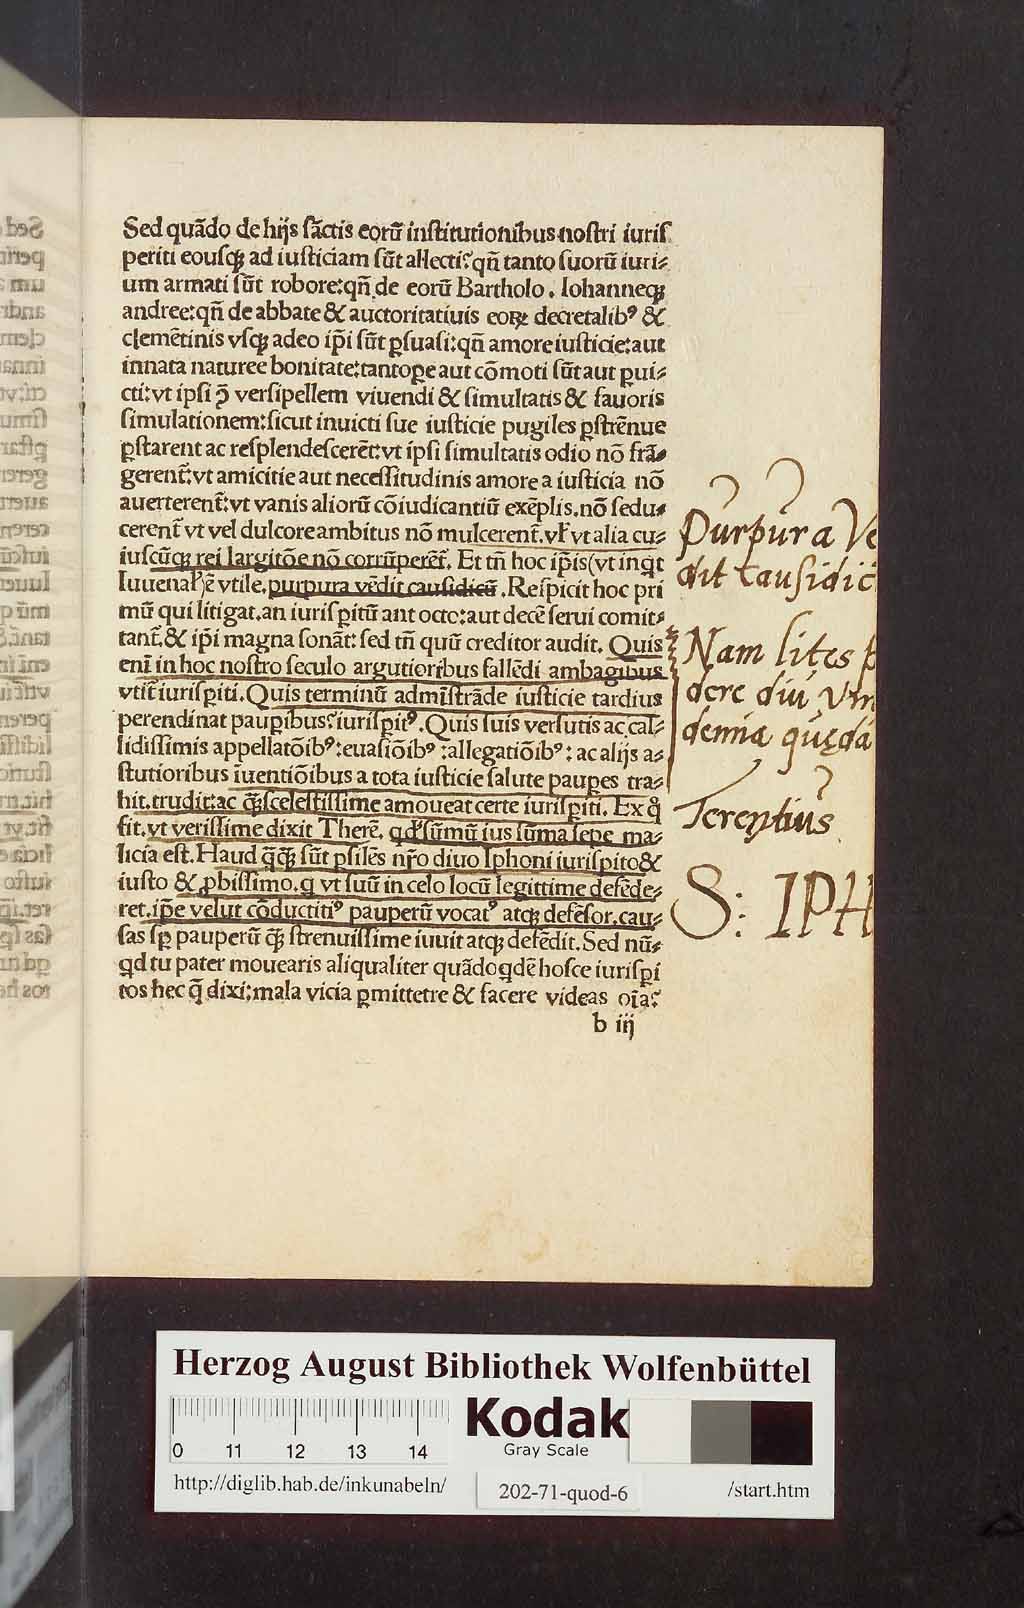 Sed quãdo de hijs sãctis eorũ institutionibus nostri iuris
periti eousqꝫ ad iusticiam sũt allecti? qñ tanto suorũ iuri⸗
um armati sũt robore: qñ de eorũ Bartholo. Iohanneqꝫ
andree: qñ de abbate & auctoritatiuis eoꝝ decretalibꝰ &
clemẽtinis vsqꝫ adeo ip̃i sũt ꝑsuasi: qñ amore iusticie: aut
innata naturee bonitate: tantopꝑe aut cõmoti sũt aut ꝑui⸗
cti: vt ipsi ꝯ̃ versipellem viuendi & simultatis & fauoris
simulationem: sicut inuicti sue iusticie pugiles p̱strẽnue
p̱starent ac resplendescerẽt: vt ipsi simultatis odio nõ frã⸗
gerent̃: vt amicitie aut necessitudinis amore a iusticia nõ
auerterent̃: vt vanis aliorũ cõiudicantiũ exẽplis. nõ sedu⸗
cerent̃ vt vel dulcore ambitus nõ mulcerent̃. vꝉ vt alia cu⸗
iuscũqꝫ rei largitõe nõ corrũperẽt̃. Et tñ hoc ip̃is (vt inq̃t
Iuuenaꝉ) ẽ vtile. purpura vẽdit causidicũ. Respicit hoc pri
mũ qui litigat. an iurisꝑitũ ant octo: aut decẽ serui comit⸗
tant̃. & ip̃i magna sonãt: sed tñ quũ creditor audit. Quis
enĩ in hoc nostro seculo argutioribus fallẽdi ambagibus
vtit̃ iurisꝑiti. Quis terminũ admĩstrãde iusticie tardius
perendinat paupꝑibus? iurisꝑitꝰ. Quis suis versutis ac cal⸗
lidissimis appellatõibꝰ: euasiõibꝰ: allegatiõibꝰ: ac alijs a⸗
stutioribus iuentiõibus a tota iusticie salute paupꝑes tra⸗
hit. trudit: ac q̃ꝫ scelestissime amoueat certe iurisꝑiti. Ex q̃
fit. vt verissime dixit Therẽ. qđ sũmũ ius sũma sepe ma⸗
licia est. Haud q̃q̃ꝫ sũt p̱silẽs nr̃o diuo Iphoni iurisꝑito &
iusto & ꝓbissimo. q̱ vt suũ in celo locũ legittime defẽde⸗
ret. ip̃e velut cõductitiꝰ pauperũ vocatꝰ atqꝫ defẽsor. cau⸗
sas sp̱ pauperũ q̃ꝫ strenuissime iuuit atqꝫ defẽdit. Sed nũ⸗
q̱d tu pater mouearis aliqualiter quãdoq̱dẽ hosce iurisꝑi
tos hec q̃ dixi: mala vicia ꝑmittetre & facere videas oĩa?
b iij
Purpura Ve
dit Causidic
Nam lites
dere diu
quędã
Terentius
S: IPH
Herzog August Bibliothek Wolfenbüttel
Kodak
Gray Scale
0 11 12 13 14
http://diglib.hab.de/inkunabeln/ 202-71-quod-6 /start.htm